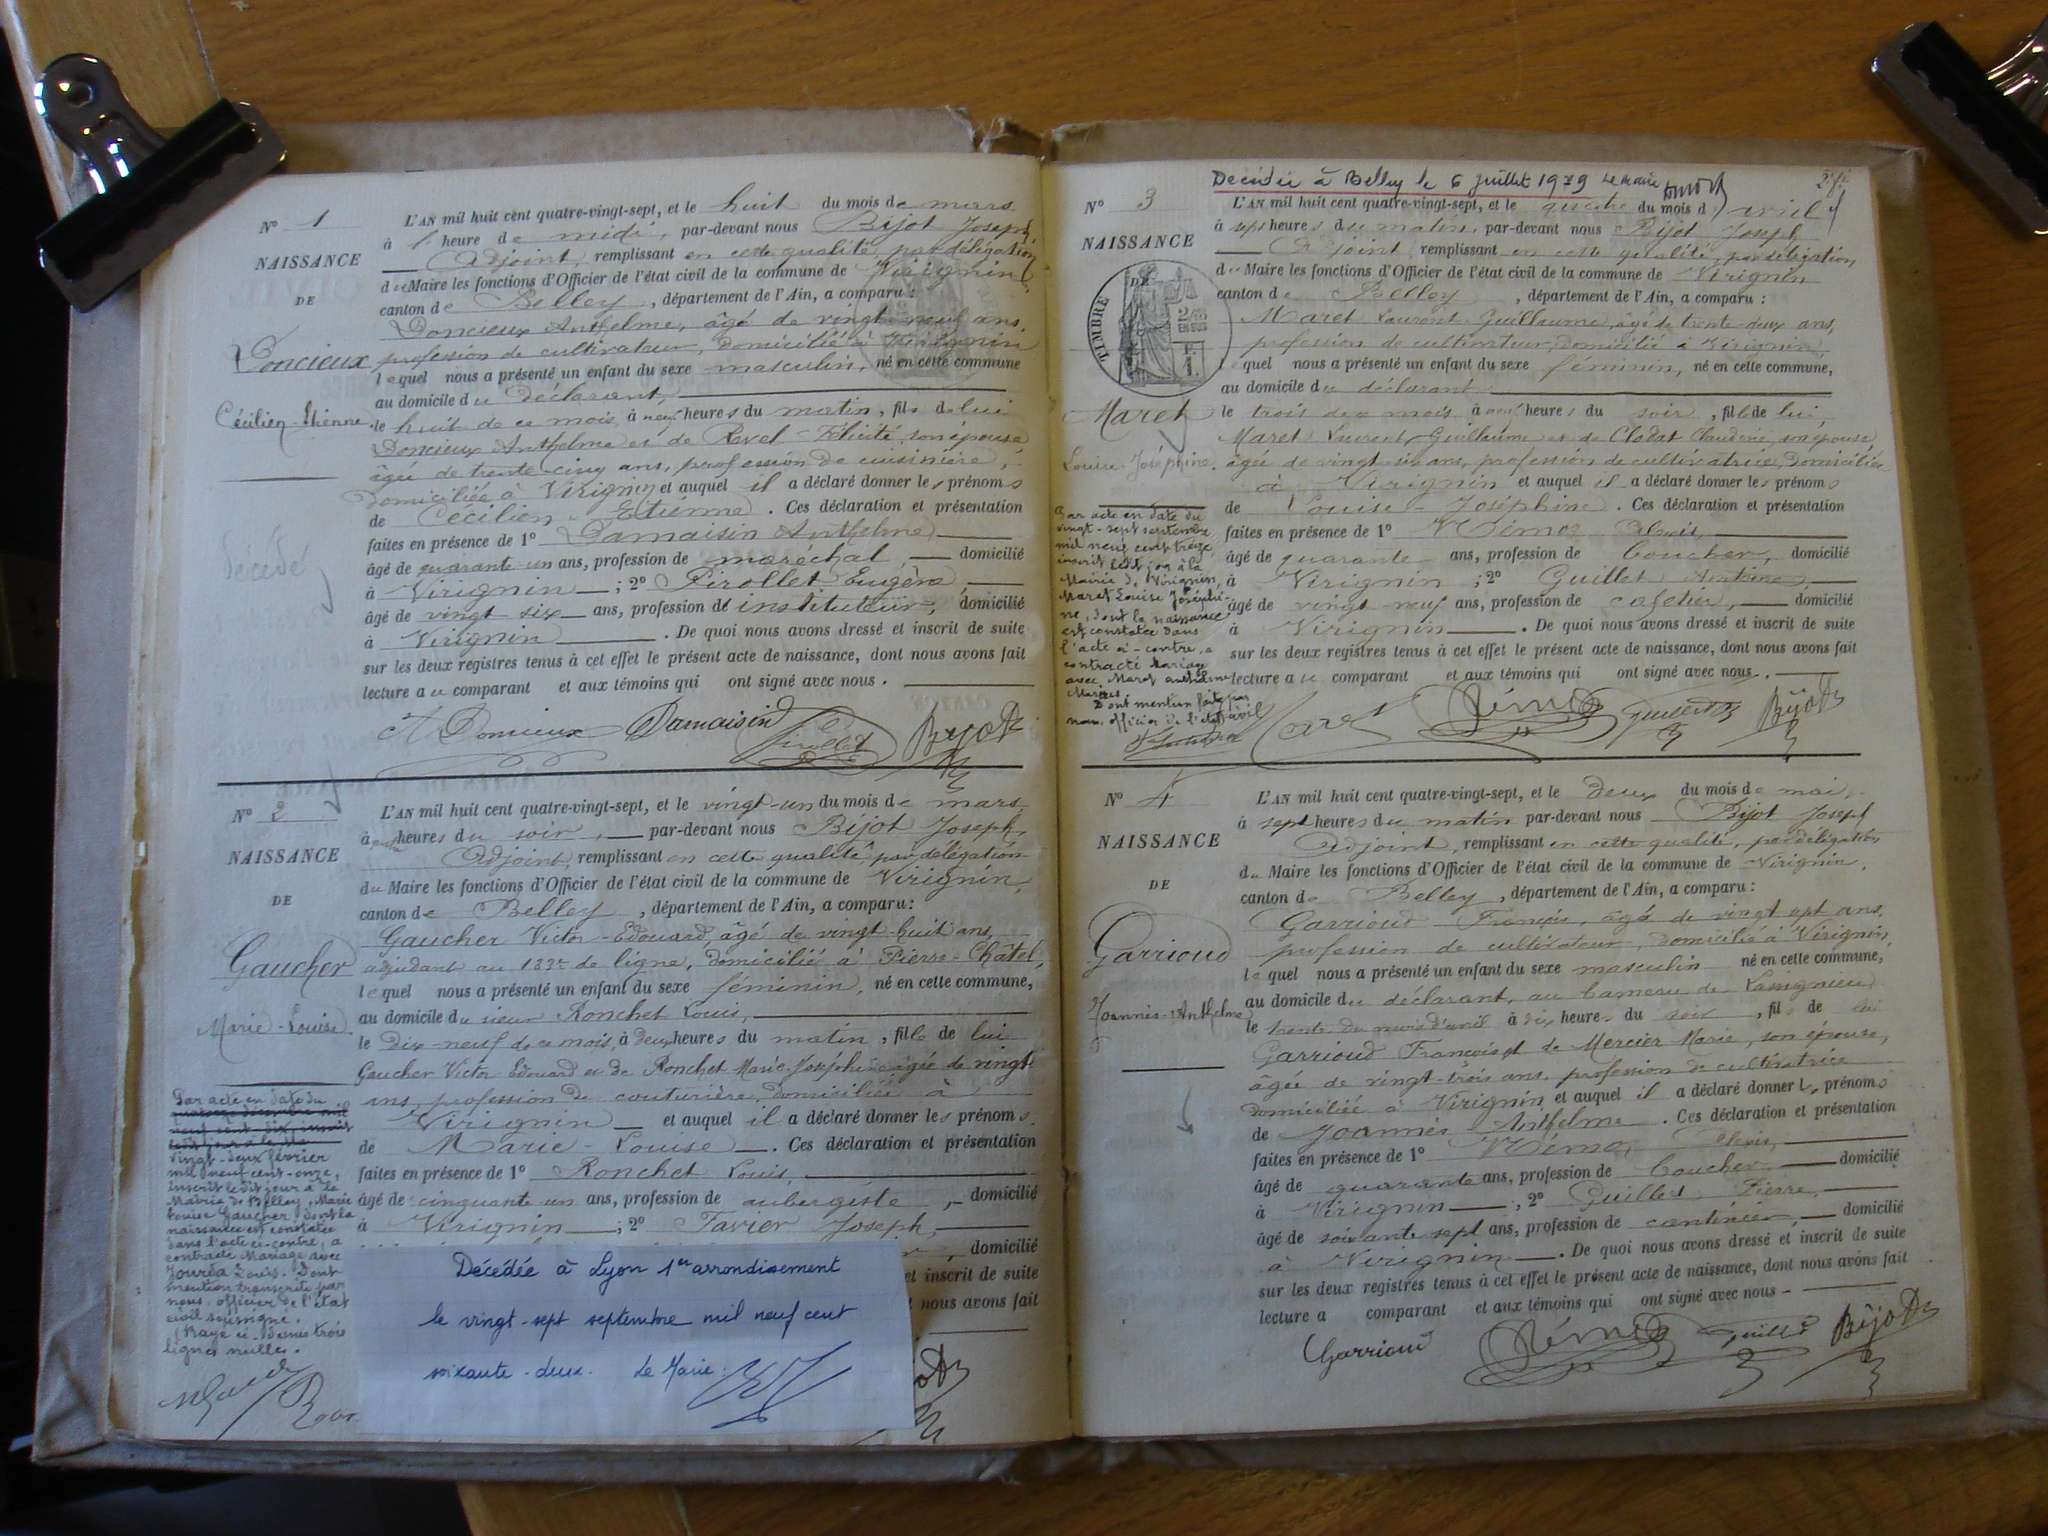 N° 1
NAISSANCE
DE
Doncieux
Cécilien-Etienne
décédé
L'AN mil huit cent quatre-vingt-sept, et le huit du mois de mars
à heure de midi, par-devant nous Bijot Joseph,
Adjoint, remplissant en cette qualité, par délégation
du Maire les fonctions d'Officier de l'état civil de la commune de Virignin
canton de Belley, département de l'Ain, a comparu :
Doncieux Anthelme, âgé de vingt neuf ans,
profession de cultivateur, domicilié à Virignin
lequel nous a présenté un enfant du sexe masculin, né en cette commune
au domicile du déclarant,
le huit de ce mois, à neuf heures du matin, fils de lui
Doncieux Anthelme et de Revel Félicité, son épouse
âgée de trente-cinq ans, profession de cuisinière,
domiciliée à Virignin et auquel il a déclaré donner les prénoms
de Cécilien Etienne. Ces déclaration et présentation
faites en présence de 1° Damaisin Anthelme
âgé de quarante un ans, profession de maréchal domicilié
à Virignin ; 2° Pirollet Eugène
âgé de vingt six ans, profession d'instituteur, domicilié
à Virignin. De quoi nous avons dressé et inscrit de suite
sur les deux registres tenus à cet effet le présent acte de naissance, dont nous avons fait
lecture au comparant et aux témoins qui ont signé avec nous.
A Doncieux Damaisin Pirollet Bijot
N° 2
NAISSANCE
DE
Gaucher
Marie-Louise
Par acte en date du
quatorze décembre mil
neuf cent dix, inscrit
vingt-deux février
mil neuf cent-onze,
inscrit le dit jour à la
Mairie de Belley, Marie
Louise Gaucher, dont la
naissance est constatée
dans l'acte ci-contre, a
contracté Mariage avec
Louis. Dont
mention transcrite par
nous, officier de l'état
civil soussigné.
(Rayé ci-dessus trois
lignes nulles.
L'AN mil huit cent quatre-vingt-sept, et le vingt-un du mois de mars
à heures du soir, par-devant nous Bijot Joseph,
Adjoint, remplissant en cette qualité, par délégation
du Maire les fonctions d'Officier de l'état civil de la commune de Virignin,
canton de Belley, département de l'Ain, a comparu :
Gaucher Victor-Edouard, âgé de vingt-huit ans,
adjudant au 133e de ligne, domicilié à Pierre-Châtel,
lequel nous a présenté un enfant du sexe féminin, né en cette commune,
au domicile du sieur Ronchet Louis,
le dix-neuf de ce mois, à deux heures du matin, fille de lui
Gaucher Victor Edouard et de Ronchet Marie-Joséphine âgée de vingt
ans, profession de couturière, domiciliée à
Virignin et auquel il a déclaré donner les prénoms
de Marie-Louise. Ces déclaration et présentation
faites en présence de 1° Ronchet Louis,
âgé de cinquante un ans, profession de aubergiste, domicilié
à Virignin ; 2° Tavier Joseph,
domicilié
et inscrit de suite
nous avons fait
Décédée à Lyon 1er arrondissement
le vingt-sept septembre mil neuf cent
soixante-deux. Le Maire :
Décédée à Belley le 6 juillet 1979 Le Maire
N° 3
NAISSANCE
DE
TIMBRE
Maret
Louise-Joséphine
Par acte en date du
vingt-sept septembre
mil neuf cent treize
inscrit ledit jour à la
Mairie de Virignin,
Maret Louise Joséphi-
ne, dont la naissance
est constatée dans
l'acte ci-contre, a
contracté Mariage
avec Maret Anthelme
Marius
Dont mention faite par
nous officier de l'état civil
L'AN mil huit cent quatre-vingt-sept, et le quatre du mois d'avril
à sept heures du matin, par-devant nous Bijot Joseph
Adjoint remplissant en cette qualité, par délégation
du Maire les fonctions d'Officier de l'état civil de la commune de Virignin
canton de Belley, département de l'Ain, a comparu :
Maret Laurent Guillaume, âgé de trente deux ans,
profession de cultivateur, domicilié à Virignin,
lequel nous a présenté un enfant du sexe féminin, né en cette commune,
au domicile du déclarant
le trois de ce mois à neuf heures du soir, fille de lui,
Maret Laurent Guillaume et de Clodat Claudine, son épouse,
âgée de vingt six ans, profession de cultivatrice, domiciliée
à Virignin et auquel il a déclaré donner les prénoms
de Louise-Joséphine. Ces déclaration et présentation
faites en présence de 1° Rémoz Alexis,
âgé de quarante ans, profession de boucher, domicilié
à Virignin ; 2° Guillet Antoine,
âgé de vingt-neuf ans, profession de cafetier, domicilié
à Virignin. De quoi nous avons dressé et inscrit de suite
sur les deux registres tenus à cet effet le présent acte de naissance, dont nous avons fait
lecture au comparant et aux témoins qui ont signé avec nous.
Maret Rémoz Guillet Bijot
N° 4
NAISSANCE
DE
Garrioud
Joannès-Anthelme
L'AN mil huit cent quatre-vingt-sept, et le deux du mois de mai,
à sept heures du matin par-devant nous Bijot Joseph
Adjoint, remplissant en cette qualité, par délégation
du Maire les fonctions d'Officier de l'état civil de la commune de Virignin,
canton de Belley, département de l'Ain, a comparu :
Garrioud François, âgé de vingt sept ans,
profession de cultivateur, domicilié à Virignin,
lequel nous a présenté un enfant du sexe masculin né en cette commune,
au domicile du déclarant, au hameau de Lassignieu
le trente du mois d'avril à dix heures du soir, fils de lui
Garrioud François et de Mercier Marie, son épouse,
âgée de vingt-trois ans, profession de cultivatrice
domiciliée à Virignin et auquel il a déclaré donner les prénoms
de Joannès Anthelme. Ces déclaration et présentation
faites en présence de 1° Rémoz Alexis,
âgé de quarante ans, profession de boucher domicilié
à Virignin ; 2° Guillet Pierre,
âgé de soixante sept ans, profession de cantinier, domicilié
à Virignin. De quoi nous avons dressé et inscrit de suite
sur les deux registres tenus à cet effet le présent acte de naissance, dont nous avons fait
lecture a comparant et aux témoins qui ont signé avec nous
Garrioud Rémoz Guillet Bijot